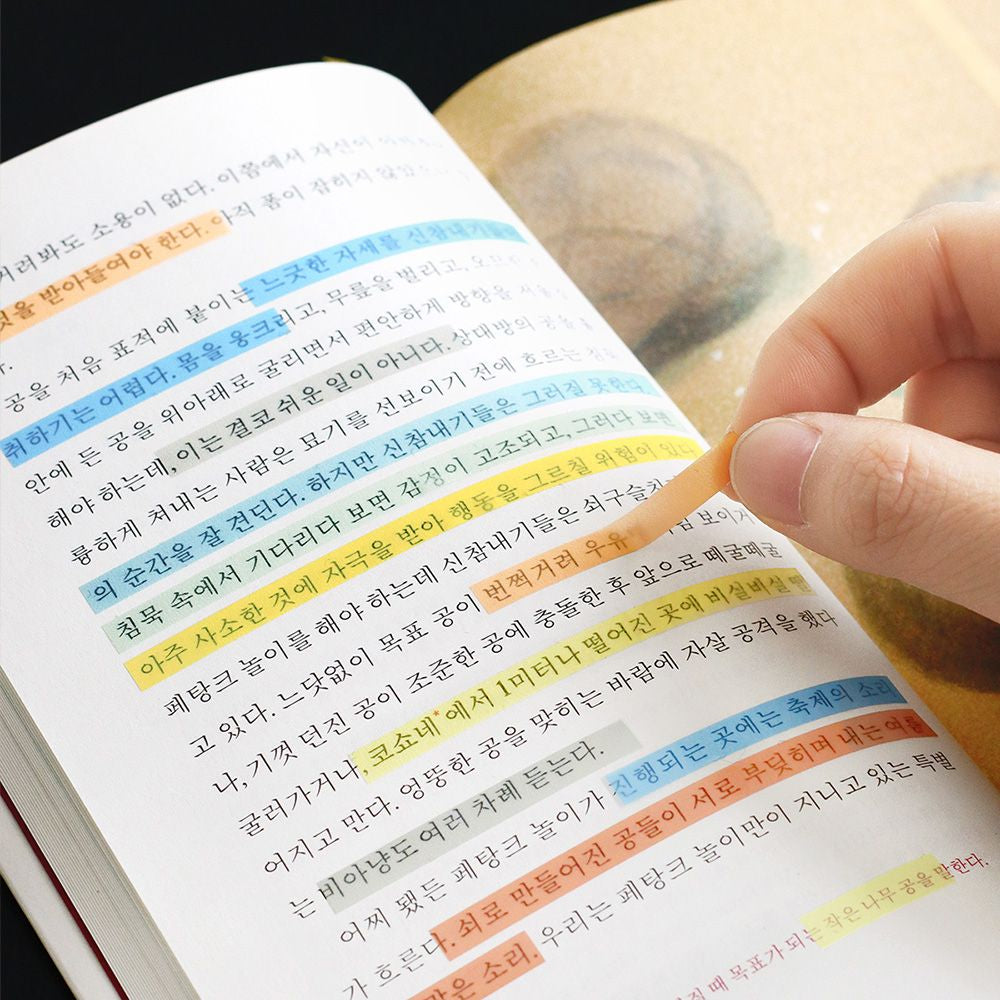 거려봐도 소용이 없다. 이쯤에서 자신이
것을 받아들여야 한다. 아직 폼이 잡히지 않았으니
다.
공을 처음 표적에 붙이는 느긋한 자세를 신참내기들은
취하기는 어렵다. 몸을 웅크리고, 무릎을 벌리고, 오므린
안에 든 공을 위아래로 굴리면서 편안하게 방향을 저울질
해야 하는데, 이는 결코 쉬운 일이 아니다. 상대방의 공을 훌
륭하게 쳐내는 사람은 묘기를 선보이기 전에 흐르는 침묵
의 순간을 잘 견딘다. 하지만 신참내기들은 그러질 못한다.
침묵 속에서 기다리다 보면 감정이 고조되고, 그러다 보면
아주 사소한 것에 자극을 받아 행동을 그르칠 위험이 있다.
페탕크 놀이를 해야 하는데 신참내기들은
고 있다. 느닷없이 목표 공이 번쩍거려 우유 보이거
나, 기껏 던진 공이 조준한 공에 충돌한 후 앞으로 떼굴떼굴
굴러가거나, 코쇼네*에서 1미터나 떨어진 곳에 비실비실 떨
어지고 만다. 엉뚱한 공을 맞히는 바람에 자살 공격을 했다
는 비아냥도 여러 차례 듣는다.
어찌 됐든 페탕크 놀이가 진행되는 곳에는 축제의 소리
가 흐른다. 쇠로 만들어진 공들이 서로 부딪히며 내는 여름
같은 소리. 우리는 페탕크 놀이만이 지니고 있는 특별
때 목표가 되는 작은 나무 공을 말한다.